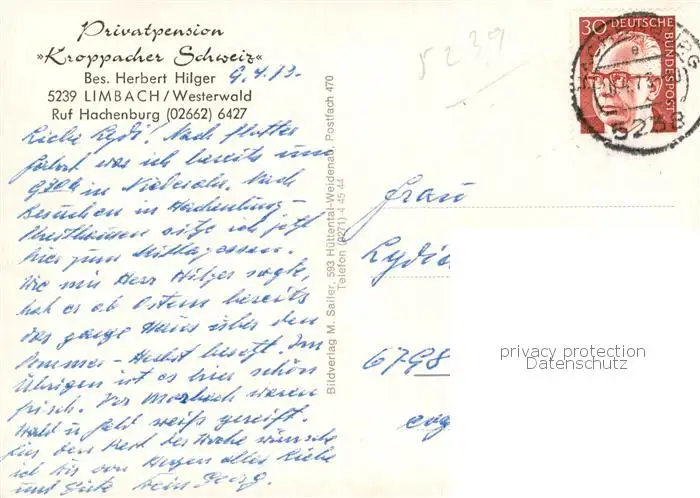 Privatpension
»Kroppacher Schweiz«
Bes. Herbert Hilger 9.4.73.
5239 LIMBACH/Westerwald
Ruf Hachenburg (02662) 6427
Liebe Lydi! Nach flotter
Fahrt war ich bereits um
9 30 h in . Nach
Besuchen in Hachenburg -
 sitze ich jetzt
hier zum Mittagessen.
Wie mir Herr Hilger sagte,
hat er ab Ostern bereits
das ganze Haus über den
Sommer - Herbst besetzt. Im
Übrigen ist es hier schön
frisch. Vor Marbach waren
Wald u Feld weiß gereift.
Für den Rest der Woche wünsche
ich Dir von Herzen alles Liebe
und Gute Dein Georg.
Bildverlag M. Sailer, 593 Hüttental-Weidenau, Postfach 470
Telefon (0271) 4 45 44
5239
30 DEUTSCHE BUNDESPOST
5238
Frau
Lydia
6798
privacy protection
Datenschutz